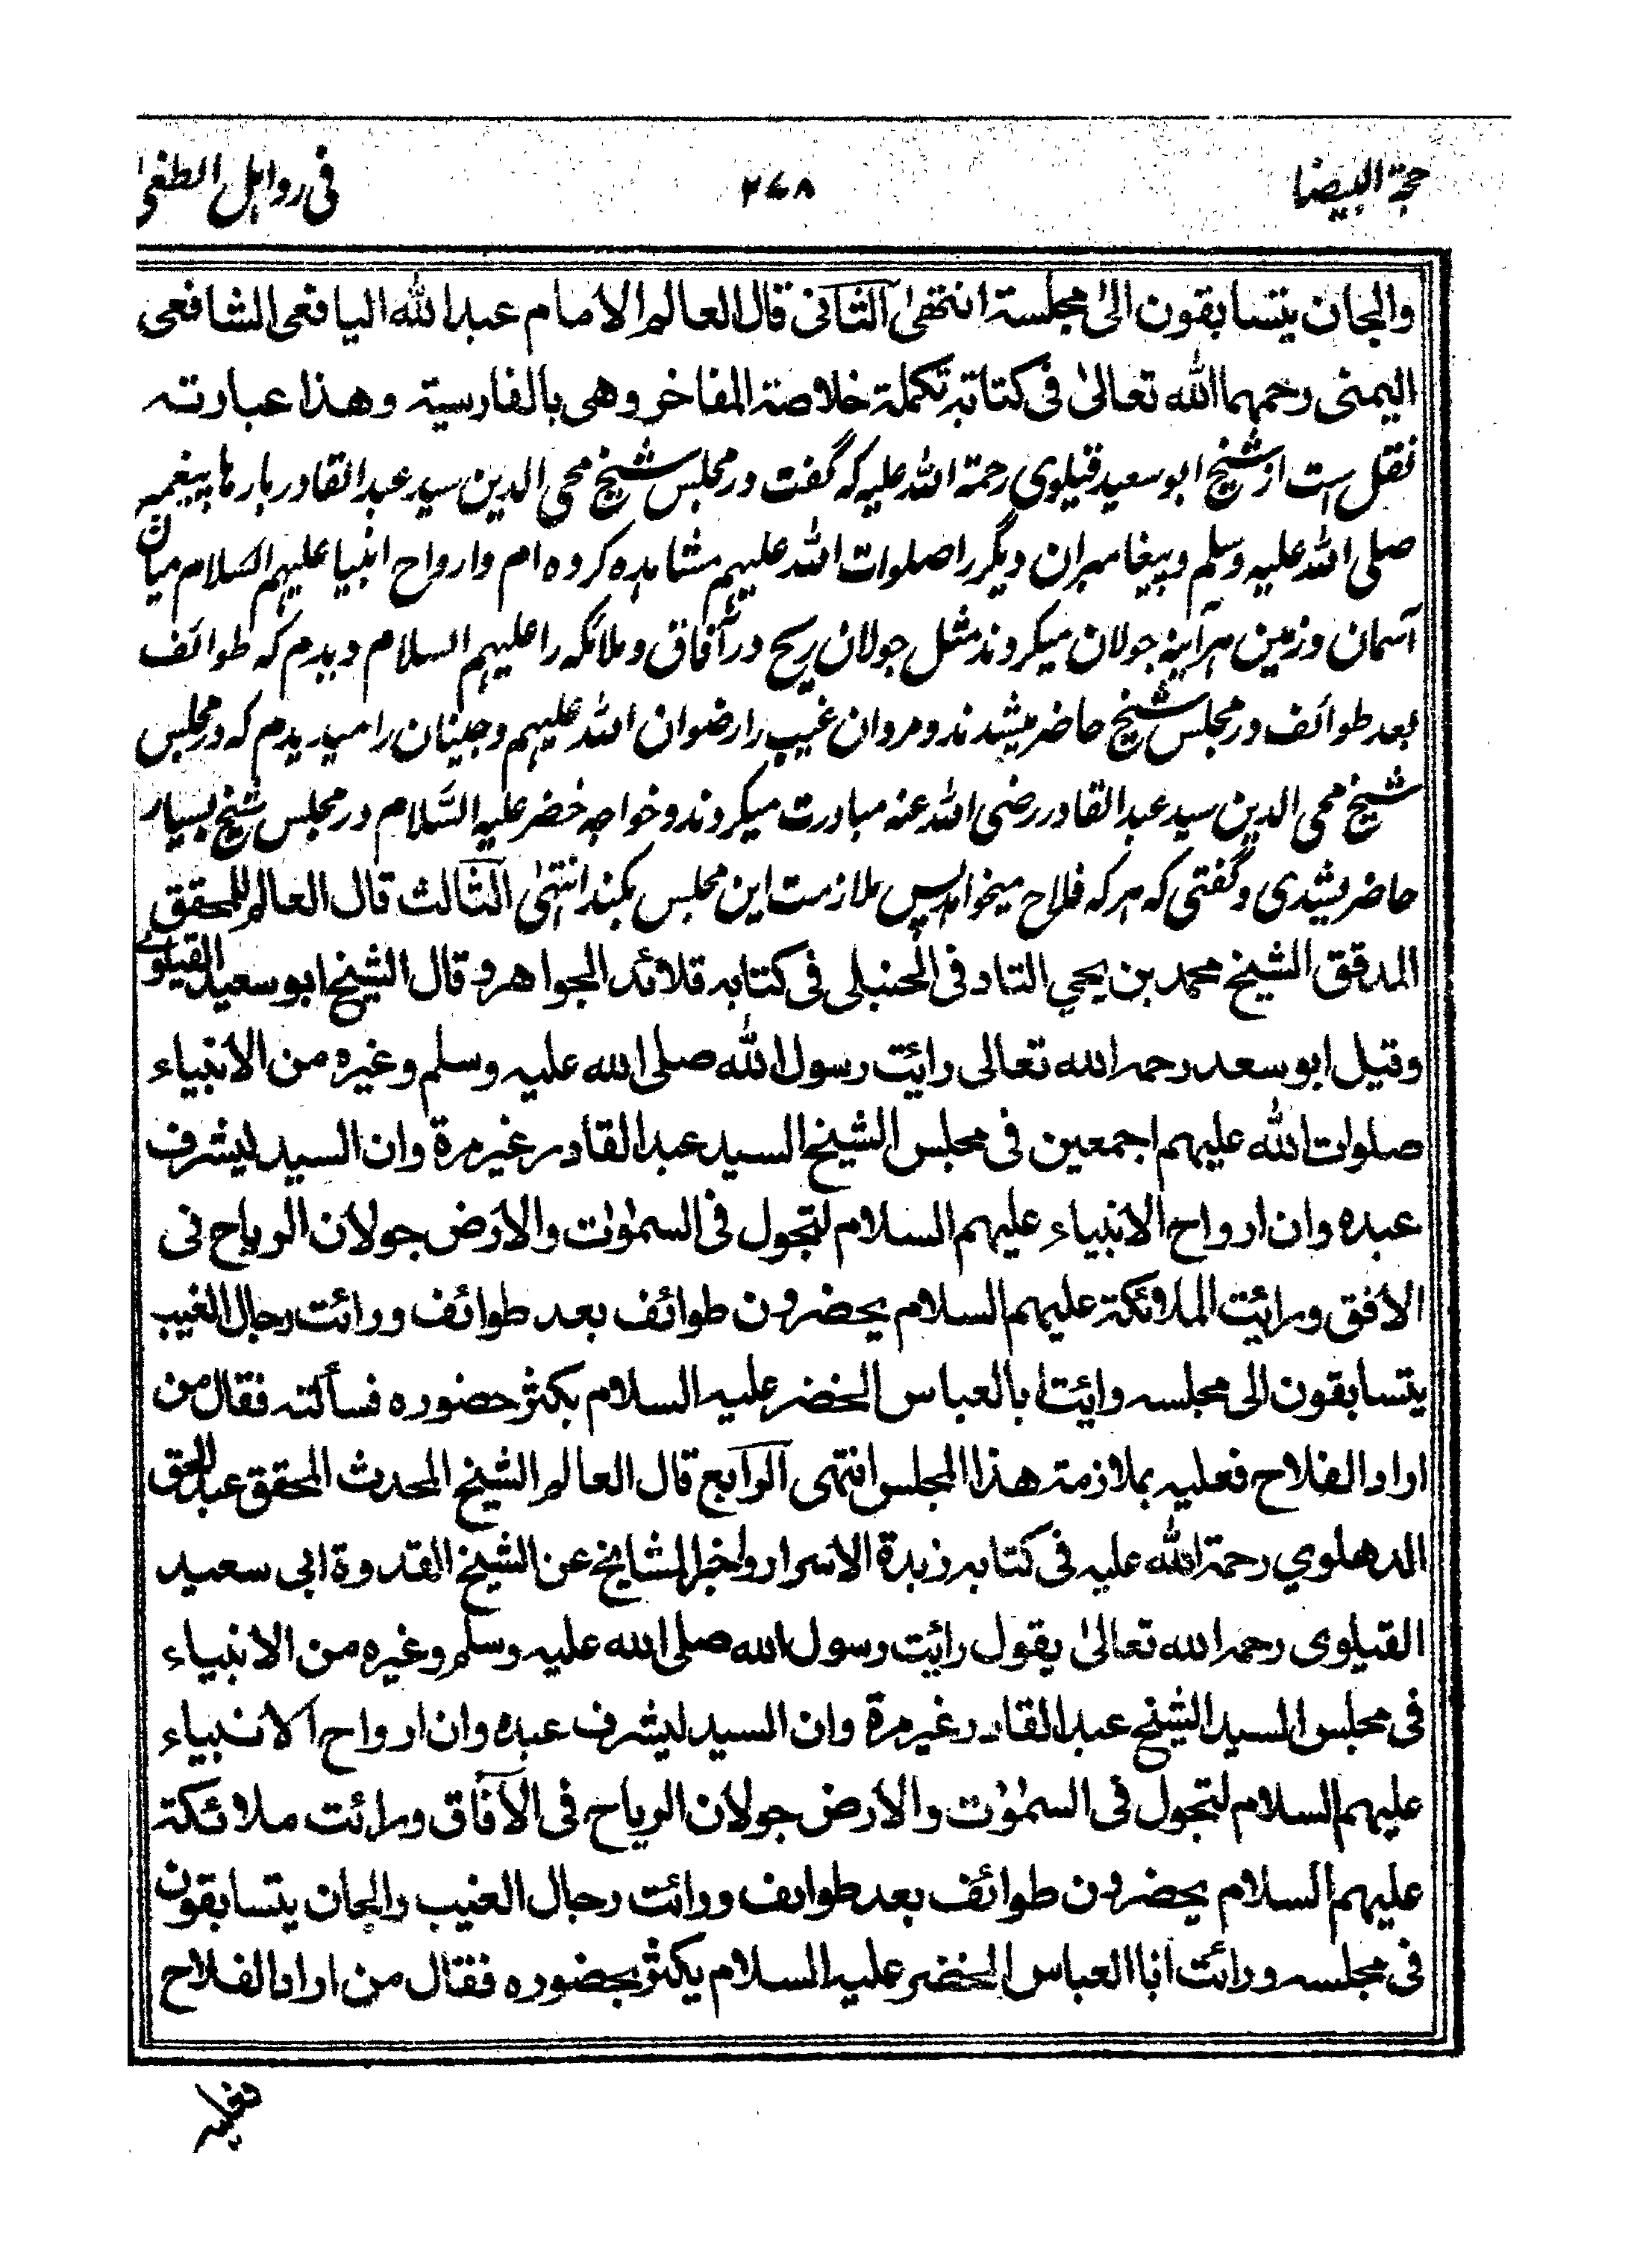 حجة البيضا ٢٤٨ فى رد اهل الطغى
والجان يتسابقون الىٰ مجلسة انتهىٰ الثانى قال العالم الامام عبد الله اليافعى الشافعى
اليمنى رحمهما الله تعالىٰ فى كتابه تكملة خلاصة المفاخر وهى بالفارسية وهذا عبارته
نقل ست از شیخ ابو سعید قیلوی رحمة الله علیه که گفت در مجلس شیخ محی الدین سید عبد القادر بارها پیغمبر
صلی الله علیه وسلم و پیغامبران دیگر را صلوات الله علیهم مشاہدہ کردہ ام و ارواح انبیا علیہم السلام میان
آسمان و زمین ہر آینہ جولان میکردند مثل جولان ریح در آفاق و ملائکہ را علیہم السلام دیدم کہ طوائف
بعد طوائف در مجلس شیخ حاضر میشدند و مردان غیب را رضوان الله علیہم و جنیان را میدیدم کہ در مجلس
شیخ محی الدین سید عبد القادر رضی الله عنہ مبادرت میکردند و خواجہ خضر علیہ السّلام در مجلس شیخ بسیار
حاضر بشدی و گفتی کہ ہر کہ فلاح میخواہد پس ملازمت این مجلس بکند انتہیٰ الثالث قال العالم المحقق
المدقق الشيخ محمد بن يحي التادفى الحنبلى فى كتابه قلائد الجواهر و قال الشيخ ابو سعيد القيلوے
وقيل ابو سعد رحمه الله تعالى رائت رسول الله صلى الله عليه وسلم وغيره من الانبياء
صلوات الله عليهم اجمعين فى مجلس الشيخ السيد عبد القادر غير مرة وان السيد ليشرف
عبده وان ارواح الانبياء عليهم السلام لتجول فى السمٰوٰت والارض جولان الرياح فى
الافق ورائت الملائكة عليهم السلام يحضرون طوائف بعد طوائف ورائت رجال الغيب
يتسابقون الى مجلسه وائت ابا العباس الخضر عليه السلام بكثر حضوره فسألته فقال من
اراد الفلاح فعليه بملازمة هذا المجلس انتهى الرابع قال العالم الشيخ المحدث المحقق عبد الحق
الدهلوي رحمة الله عليه فى كتابه زبدة الاسرار واخبر المشايخ عن الشيخ القدوة ابى سعيد
القيلوى رحمه الله تعالىٰ يقول رائت رسول الله صلى الله عليه وسلم وغيره من الانبياء
فى مجلس السيد الشيخ عبد القادر غير مرة وان السيد ليشرف عبده وان ارواح الانبياء
عليهم السلام لتجول فى السمٰوٰت والارض جولان الرياح فى الآفاق ورائت ملائكة
عليهم السلام يحضرون طوائف بعد طوايف ورائت رجال الغيب والجان يتسابقون
فى مجلسه ورائت ابا العباس الخضر عليه السلام يكثر بحضوره فقال من اراد الفلاح
فعليه